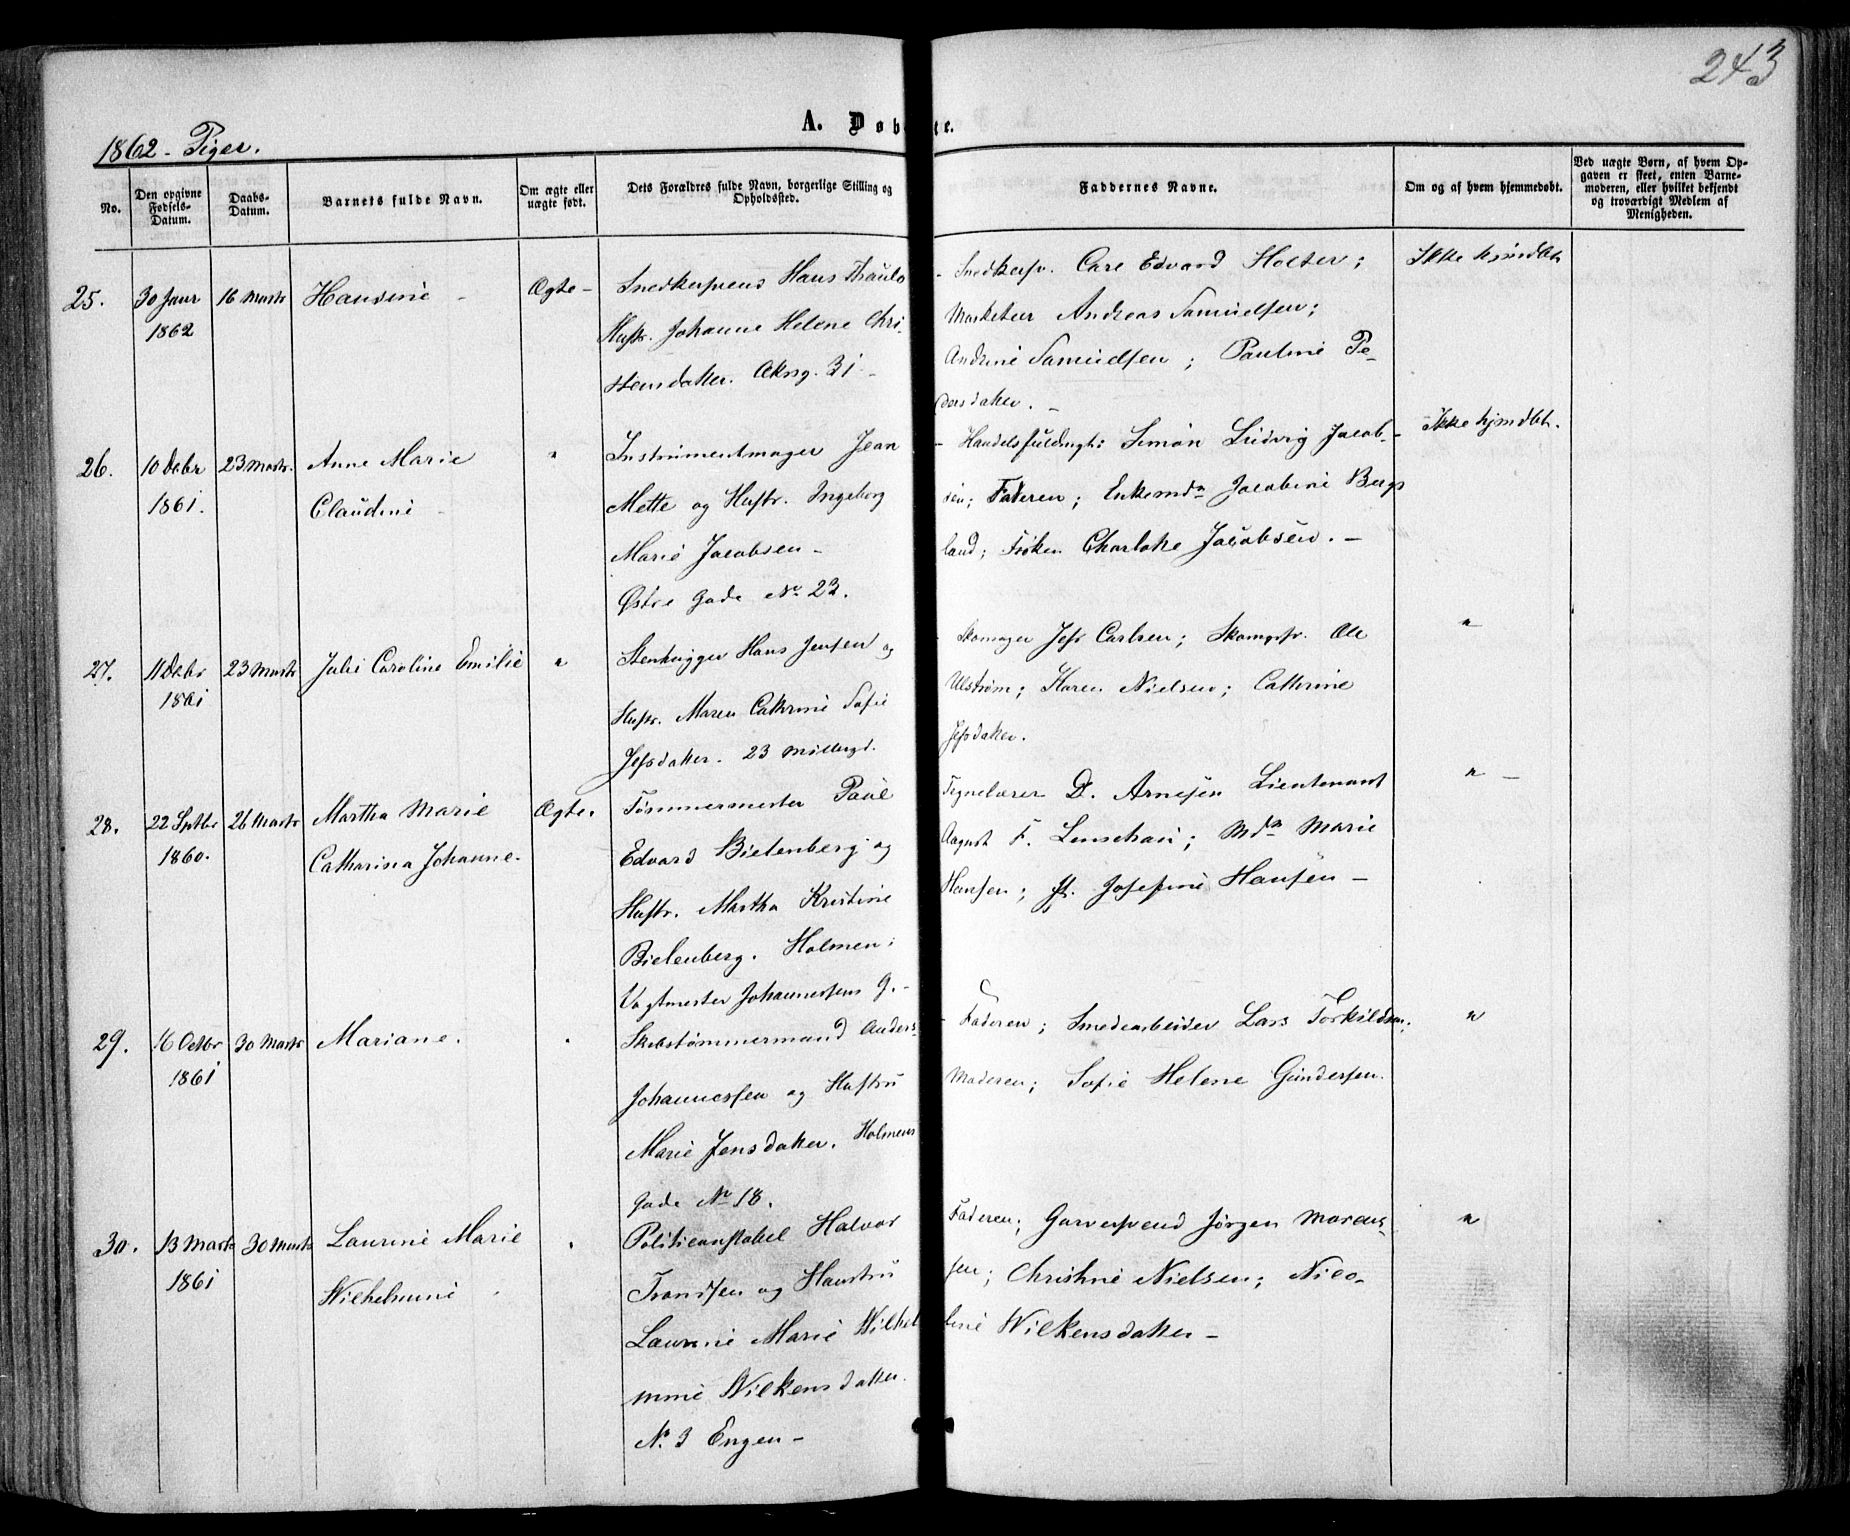 243
A. Døbte.
1862 - Piger.
No.
Den opgivne Fødsels-Datum.
Daabs-Datum.
Barnets fulde Navn.
Om ægte eller uægte født.
Dets Forældres fulde Navn, borgerlige Stilling og Opholdssted.
Faddernes Navne.
Om og af hvem hjemmedøbt.
Ved uægte Børn, af hvem Opgaven er skeet, enten Barnemoderen, eller hvilket bekjendt og troværdigt Medlem af Menigheden.
25. 30 Janr 16 Marts Hansine - Ægte - Snedkersvend Hans Thaulo - Snedkersv. Carl Edvard Holter; Ikke hjmdbt
1862 Hustr. Johanne Helene Chri- Marketur Andreas Samuelsen;
stensdatter. Akrsg. 31 - Andrine Samuelsen; Pauline Pe-
dersdatter. -
26. 10 Decbr 23 Marts. Anne Marie " Instrumentmager Jean - Handelsfuldmgt: Simon Ludvig Jacob- Ikke hjmdbt.
1861. Claudine - Mette og Hustr. Ingeborg sen; Faderen; Enkemdm Jacobine Bergs
Marie Jacobsen - land; Frøken Charlotte Jacobsen. -
Østre Gade No 23.
27. 11 Decbr 23 Marts Julie Caroline Emilie " Stenhugger Hans Jensen og - Skomager Jess Carlsen; Skomgsv. Ole "
1861 Hustr. Maren Cathrine Sofie Ulstrøm; Karen Nielsen; Cathrine
Jessdatter. 23 Møllergd. Jessdatter.
28. 22 Sptbr 26 Marts Martha Marie Ægte. Tømmermester Paul Tegnelærer D. Arnesen Lieutenant " -
1860. Catharina Johanne. Edvard Bielenberg og August F. Lenschau; Mdm Marie
Hustr. Martha Kristine Hansen; Josefine Hansen -
Bielenberg. Holmen;
Vagtmester Johannessens G. -
29. 16 Octbr 30 Marts Mariane. " Skibstømmermand Anders - Faderen; Smedearbeider Lars Torkildsen; "
1861 Johannessen og Hustru Moderen; Sofie Helene Gundersen.
Marie Jensdatter. Holmens
Gade No 18.
30. 13 Marts 30 Marts Laurine Marie " Politiconstabel Halvor Faderen; Garversvend Jørgen Marcus- "
1861 Wilhelmine Trondsen og Haustru sen; Christine Nielsen; Nico-
Laurine Marie Wilhel line Wilkensdatter -
mine Wilkensdatter.
No. 3 Engen -